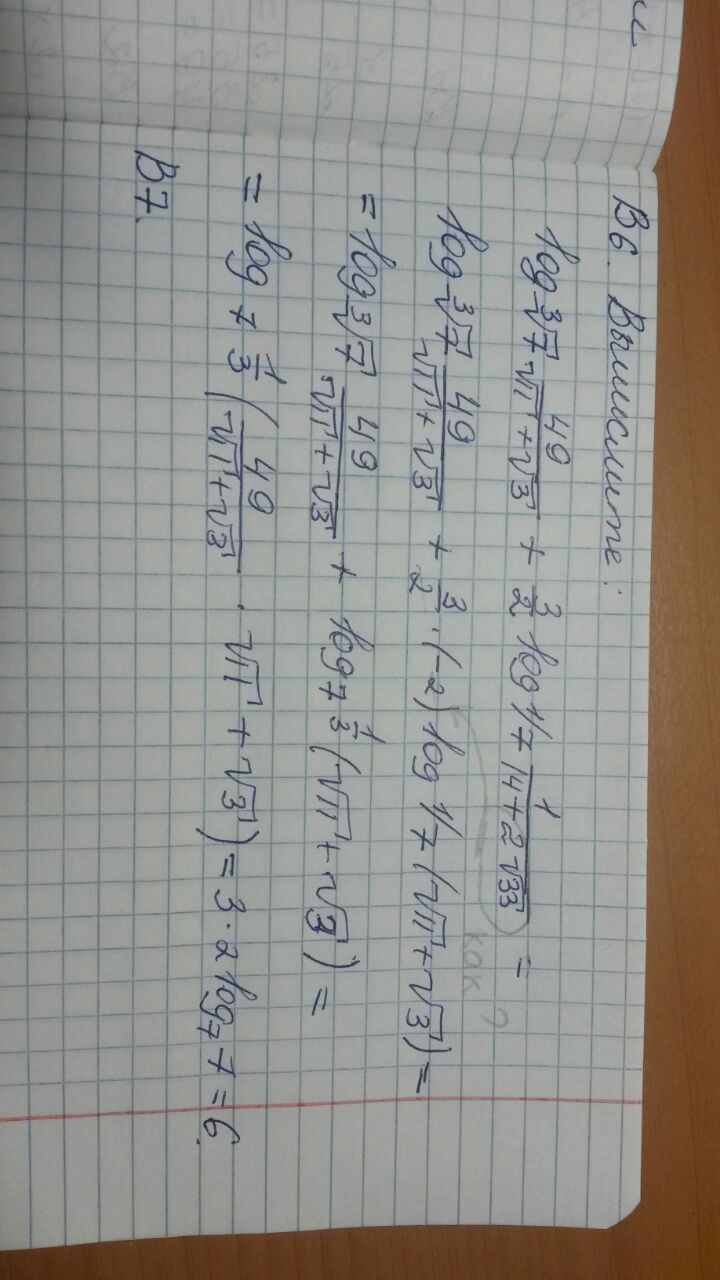 В6. Вычислите:
log ∛7 49/(√11 + √3) + 3/2 log 1/7 1/(14 + 2√33) =
log ∛7 49/(√11 + √3) + 3/2 · (-2) log 1/7 (√11 + √3) =
как ?
= log ∛7 49/(√11 + √3) + log 7 1/3 (√11 + √3) =
= log 7 1/3 (49/(√11 + √3) · √11 + √3) = 3 · 2 log₇ 7 = 6.
В7.